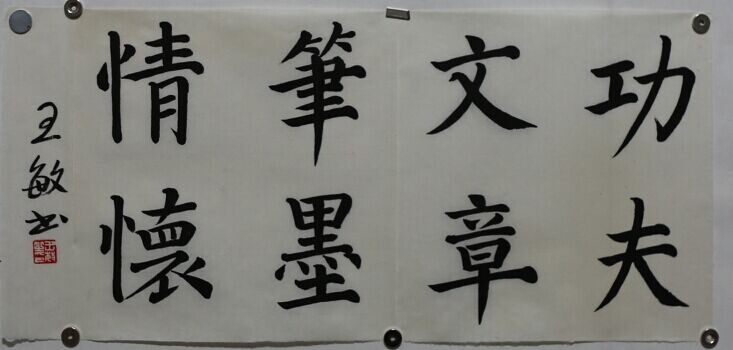 功夫
文章
筆墨
情懷
王敏书